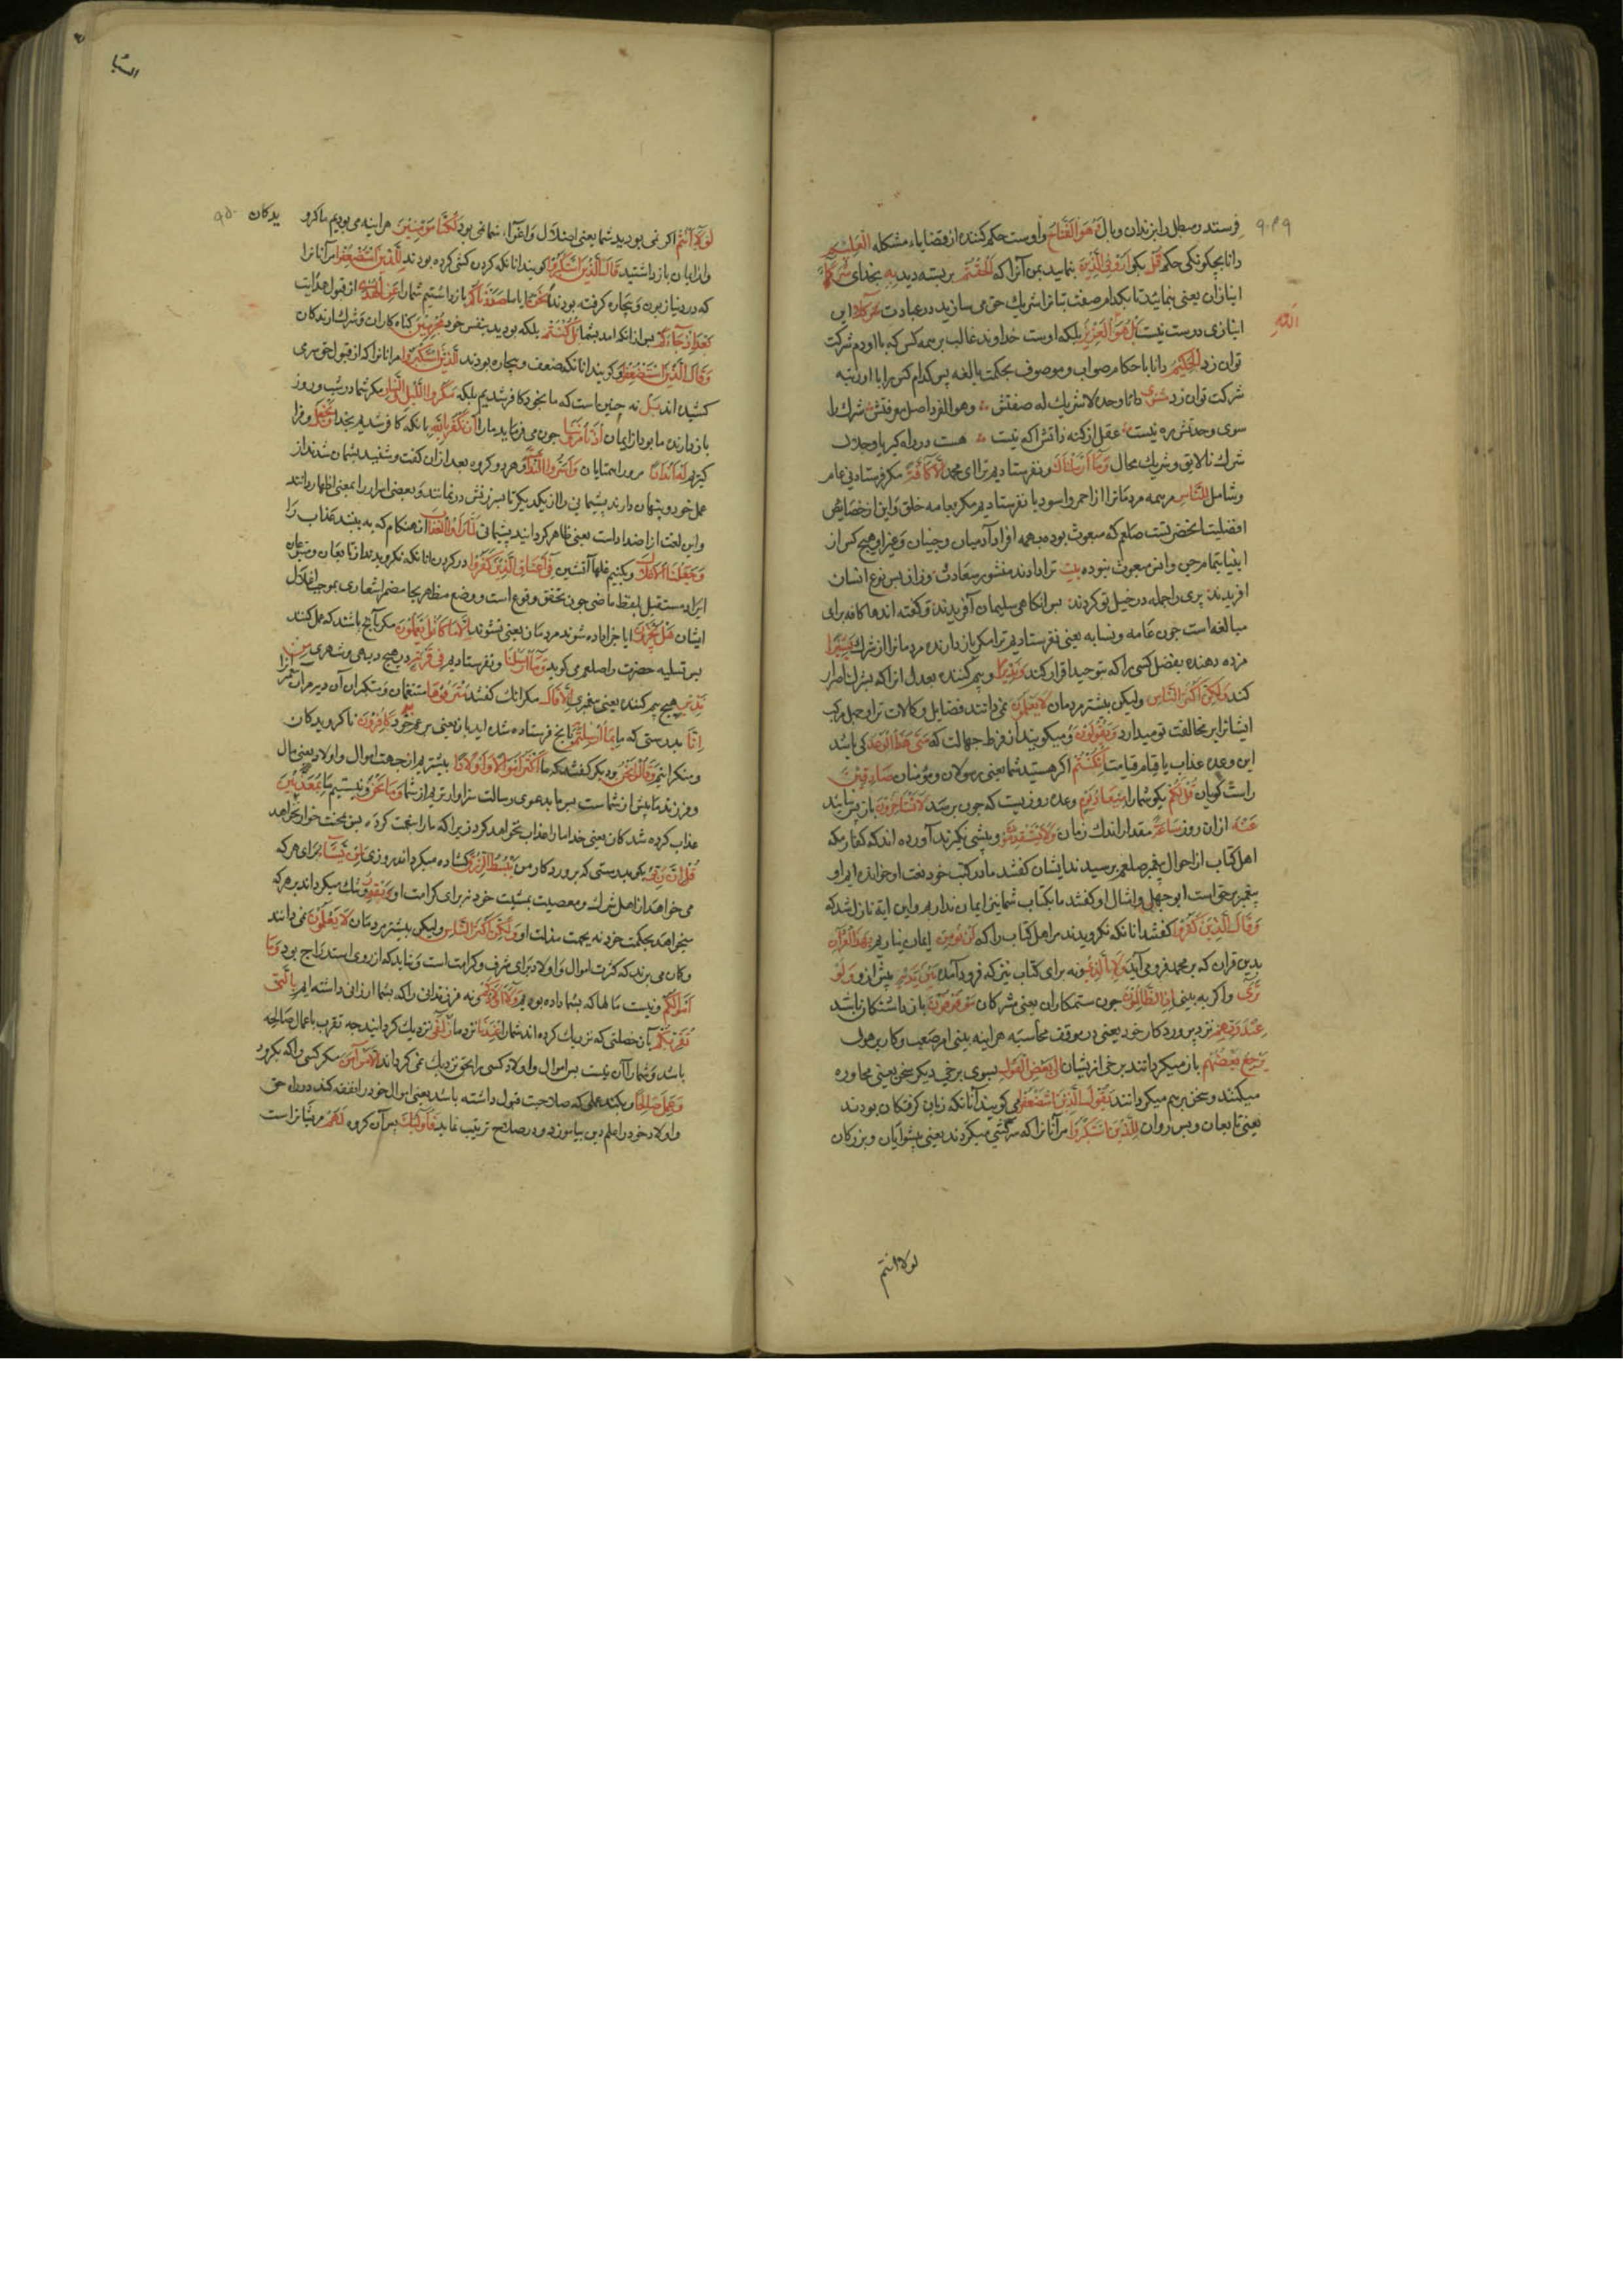 فرستد و مبطل را بزندان وبال وَهُوَ الْفَتَّاحُ و اوست حکم کننده از قضایاء مشکله الْعَلِيمُ
دانا بچکونکی حکم قُلْ بکو أَرُونِيَ الَّذِينَ بنمایید بمن آنرا که أَلْحَقْتُمْ بر بسته دید بِهِ بخدای شُرَكَاءَ
انبازان یعنی بنمائید تا بکدام صفت بتانرا شریك حق می سازید در عبادت كَلَّا این
انبازی درست نیست بَلْ هُوَ اللَّهُ الْعَزِيزُ بلکه اوست خداوند غالب بر همه کس که با او دم شرکت
توان زد الْحَكِيمُ دانا باحکام صواب و موصوف بحکمت بالغه پس کدام کس را با او رتبه
شرکت توان زد مثنوی ذات وحده لا شریك له صفتش وهو الفرد اصل معرفتش شرك را
سوی وحدتش ره نیست عقل از کنه ذاتش آکه نیست هست در راه کبریا و جلال
شرك نالایق و شریك محال وَمَا أَرْسَلْنَاكَ و نفرستادیم ترا ای محمد إِلَّا كَافَّةً مکر فرستادنی عام
و شامل لِلنَّاسِ مر همه مردمانرا از احمر و اسود یا نفرستادیم مکر بعامه خلق و این از خصایص
افضلیت آنحضرتست صلعم که مبعوث بوده بهمه افراد آدمیان و جنیان و غیر او هیچ کس از
انبیا بتمام جن و انس مبعوث نبوده بیت ترا دادند منشور سعادت وزان پس نوع انسان
افریدند پری را جمله در خیل تو کردند پس انکاهی سلیمان آفریدند و کفته اند ها کافه برای
مبالغه است چون عامه و نسابه یعنی نفرستادیم ترا مکر باز دارنده مردمانرا از شرك بَشِيرًا
مژده دهنده بفضل کسی را که بتوحید اقرار کند وَنَذِيرًا و بیم کننده بعدل انرا که بشرك اصرار
کند وَلَكِنَّ أَكْثَرَ النَّاسِ ولیکن بیشتر مردمان لَا يَعْلَمُونَ نمی دانند فضایل و کمالات ترا و جهل مرکب
ایشانرا بر مخالفت تو میدارد وَيَقُولُونَ و میکویند از فرط جهالت که مَتَى هَذَا الْوَعْدُ کی باشد
این وعده عذاب یا قیام قیامت إِنْ كُنْتُمْ اکر هستید شما یعنی رسولان و مؤمنان صَادِقِينَ
راست کویان قُلْ لَكُمْ بکو شمارا مِيعَادُ يَوْمٍ وعده روزیست که چون برسد لَا تَسْتَأْخِرُونَ باز پس نیایند
عَنْهُ ازان روز سَاعَةً مقدار اندك زمان وَلَا تَسْتَقْدِمُونَ و پیشی نکیرند آورده اند که کفار مکه
اهل کتاب از احوال پیغمبر صلعم پرسیدند ایشان کفتند ما در کتب خود نعت او خوانده ایم او
پیغمبر بر حق است ابو جهل و امثال او کفتند ما بکتاب شما نیز ایمان نداریم و این آیة نازل شد که
وَقَالَ الَّذِينَ كَفَرُوا کفتند انانکه نکرویدند مر اهل کتاب را که لَنْ نُؤْمِنَ ایمان نیاریم بِهَذَا الْقُرْآنِ
بدین قران که بر محمد فرو می آید وَلَا بِالَّذِي و نه برای کتاب نیز که فرود آمده بَيْنَ يَدَيْهِ پیش از او وَلَوْ
تَرَى و اکر به بینی إِذِ الظَّالِمُونَ چون ستمکاران یعنی مشرکان مَوْقُوفُونَ باز داشتکان باشد
عِنْدَ رَبِّهِمْ نزد پرورد کار خود یعنی در موقف محاسبه هر اینه بینی امر صعب و کار پر هول
يَرْجِعُ بَعْضُهُمْ باز میکردانند برخی از یشان إِلَى بَعْضٍ الْقَوْلَ بسوی برخی دیکر سخن یعنی محاوره
میکنند و سخن بر هم میکردانند يَقُولُ الَّذِينَ اسْتُضْعِفُوا می کویند آنانکه زبان کرفتکان بودند
یعنی تابعان و پس روان لِلَّذِينَ اسْتَكْبَرُوا مر آنانرا که سرکشی میکردند یعنی پیشوایان و بزرکان
لولا انتم
۹۴۹
اللّه
السبا
۹۵۰
لَوْلَا أَنْتُمْ اکر نمی بودید شما یعنی اضلال و اغواء شما نمی بود لَكُنَّا مُؤْمِنِينَ هر اینه می بودیم ما کرو یدکان
و از ایمان باز داشتید قَالَ الَّذِينَ اسْتَكْبَرُوا کویند انانکه کردن کشی کرده بودند لِلَّذِينَ اسْتُضْعِفُوا مر آنانرا
که در دنیا زبون و بیچاره کرفته بودند أَنَحْنُ ایا ما صَدَدْنَاكُمْ باز داشتیم شمارا عَنِ الْهُدَى از قبول هدایت
بَعْدَ إِذْ جَاءَكُمْ پس از انکه امد بشما بَلْ كُنْتُمْ بلکه بودید بنفس خود مُجْرِمِينَ کناه کاران و شرك ارندکان
وَقَالَ الَّذِينَ اسْتُضْعِفُوا و کویند انانکه ضعیف و بیچاره بودند لِلَّذِينَ اسْتَكْبَرُوا مر انانرا که از قبول حق سر می
کشیده اند بَلْ نه چنین است که ما بخود کافر شدیم بلکه مَكْرُ اللَّيْلِ وَالنَّهَارِ مکر شما در شب و روز
باز دارنده ما بود از ایمان إِذْ تَأْمُرُونَنَا چون می فرمایید مارا أَنْ نَكْفُرَ بِاللَّهِ بانکه کافر شدیم بخدا وَنَجْعَلَ و فرا
کیریم لَهُ أَنْدَادًا مرورا همتایان وَأَسَرُّوا النَّدَامَةَ و هر دو کروه بعد ازان کفت و شنید پشیمان شدند از
عمل خود و پنهان دارند پشیمانی را از یکدیکر تا بسرزنش درنمانند و بعضی اسرار را بمعنی اظهار دانند
و این لغت از اضداد است یعنی ظاهر کردانید پشیمانی لَمَّا رَأَوُا الْعَذَابَ ان هنکام که به بینند عذاب را
وَجَعَلْنَا الْأَغْلَالَ و بکنیم غلها آتشین فِي أَعْنَاقِ الَّذِينَ كَفَرُوا در کردن انانکه نکرویدند از تابعان و متبوعان
ایراد مستقبل بلفظ ماضی جون تحقق وقوع است و وضع مظاهر بجا مضمر اشعاری بموجب اغلال
ایشان هَلْ يُجْزَوْنَ ایا جزا داده شوند مردمان یعنی نشوند إِلَّا مَا كَانُوا يَعْمَلُونَ مکر بآنچ باشند که عمل کنند
پس تسلیه حضرت را صلعم می کوید وَمَا أَرْسَلْنَا و نفرستادیم فِي قَرْيَةٍ در هیچ دیهی و شهری مِنْ
نَذِيرٍ هیچ بیم کننده یعنی پیغمبری إِلَّا قَالَ مکر انك کفتند مُتْرَفُوهَا متنعمان و متکبران آن دیه مرانرا
إِنَّا بدرستی که ما بِمَا أُرْسِلْتُمْ بآنچ فرستاده شده اید بان یعنی بر عم خود كَافِرُونَ نا کرویدکان
و منکرانیم وَقَالُوا نَحْنُ و دیکر کفتند که ما أَكْثَرُ أَمْوَالًا وَأَوْلَادًا بیشتریم ازجهت اموال و اولاد یعنی مال
و فرزند ما پیش از شماست پس ما بدعوی رسالت سزاوارتریم از شما وَمَا نَحْنُ و نیستیم ما بِمُعَذَّبِينَ
عذاب کرده شدکان یعنی خدا مارا عذاب نخواهد کرد زیرا که مارا نعمت کرده پس بمحنت خوار نخواهد
قُلْ إِنَّ رَبِّي بکو بدرستی که پرورد کار من يَبْسُطُ الرِّزْقَ کشاده میکرداند روزی لِمَنْ يَشَاءُ برای هر که
می خواهد از اهل شرك و معصیت بمشیت خود نه برای کرامت او وَيَقْدِرُ و تنك میکرداند بر هر که
میخواهد بحکمت خود نه بجهت مذلت او وَلَكِنَّ أَكْثَرَ النَّاسِ ولیکن بیشتر مردمان لَا يَعْلَمُونَ نمی دانند
و کان می برند که کثرت اموال و اولاد برای شرف و کرامت است و شاید که از روی استدراج بود وَمَا
أَمْوَالُكُمْ و نیست مالها که بشما داده بودیم وَلَا أَوْلَادُكُمْ و نه فرزندانی را که بشما ارزانی داشته ایم بِالَّتِي
تُقَرِّبُكُمْ بآن خصلتی که نزدیك کرده اند شمارا عِنْدَنَا نزد ما زُلْفَى نزدیك کردانید چه تقرب باعمال صالحه
باشد و شمارا آن نیست پس اموال و اولاد کسی را بحق نزدیك نمی کرداند إِلَّا مَنْ آمَنَ مکر کسی را که بکرود
وَعَمِلَ صَالِحًا و بکند عملی که صلاحیت قبول داشته باشد یعنی اموال خود را نفقه کند در راه حق
و اولاد خود را علم دین بیاموزد و در صلاح تربیت نماید فَأُولَئِكَ پس آن کروه لَهُمْ مریشانراست